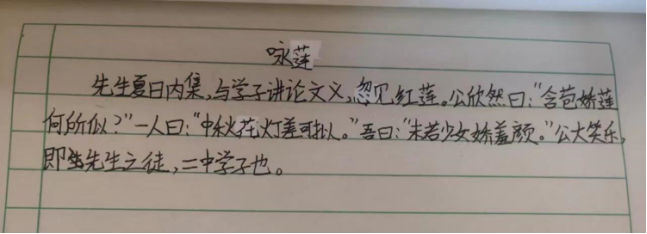 咏莲
先生夏日内集,与学子讲论文义,忽见红莲。公欣然曰:“含苞娇莲
何所似?”一人曰:“中秋花灯差可拟。”吾曰:“未若少女娇羞颜。”公大笑乐,
即先生之徒,二中学子也。